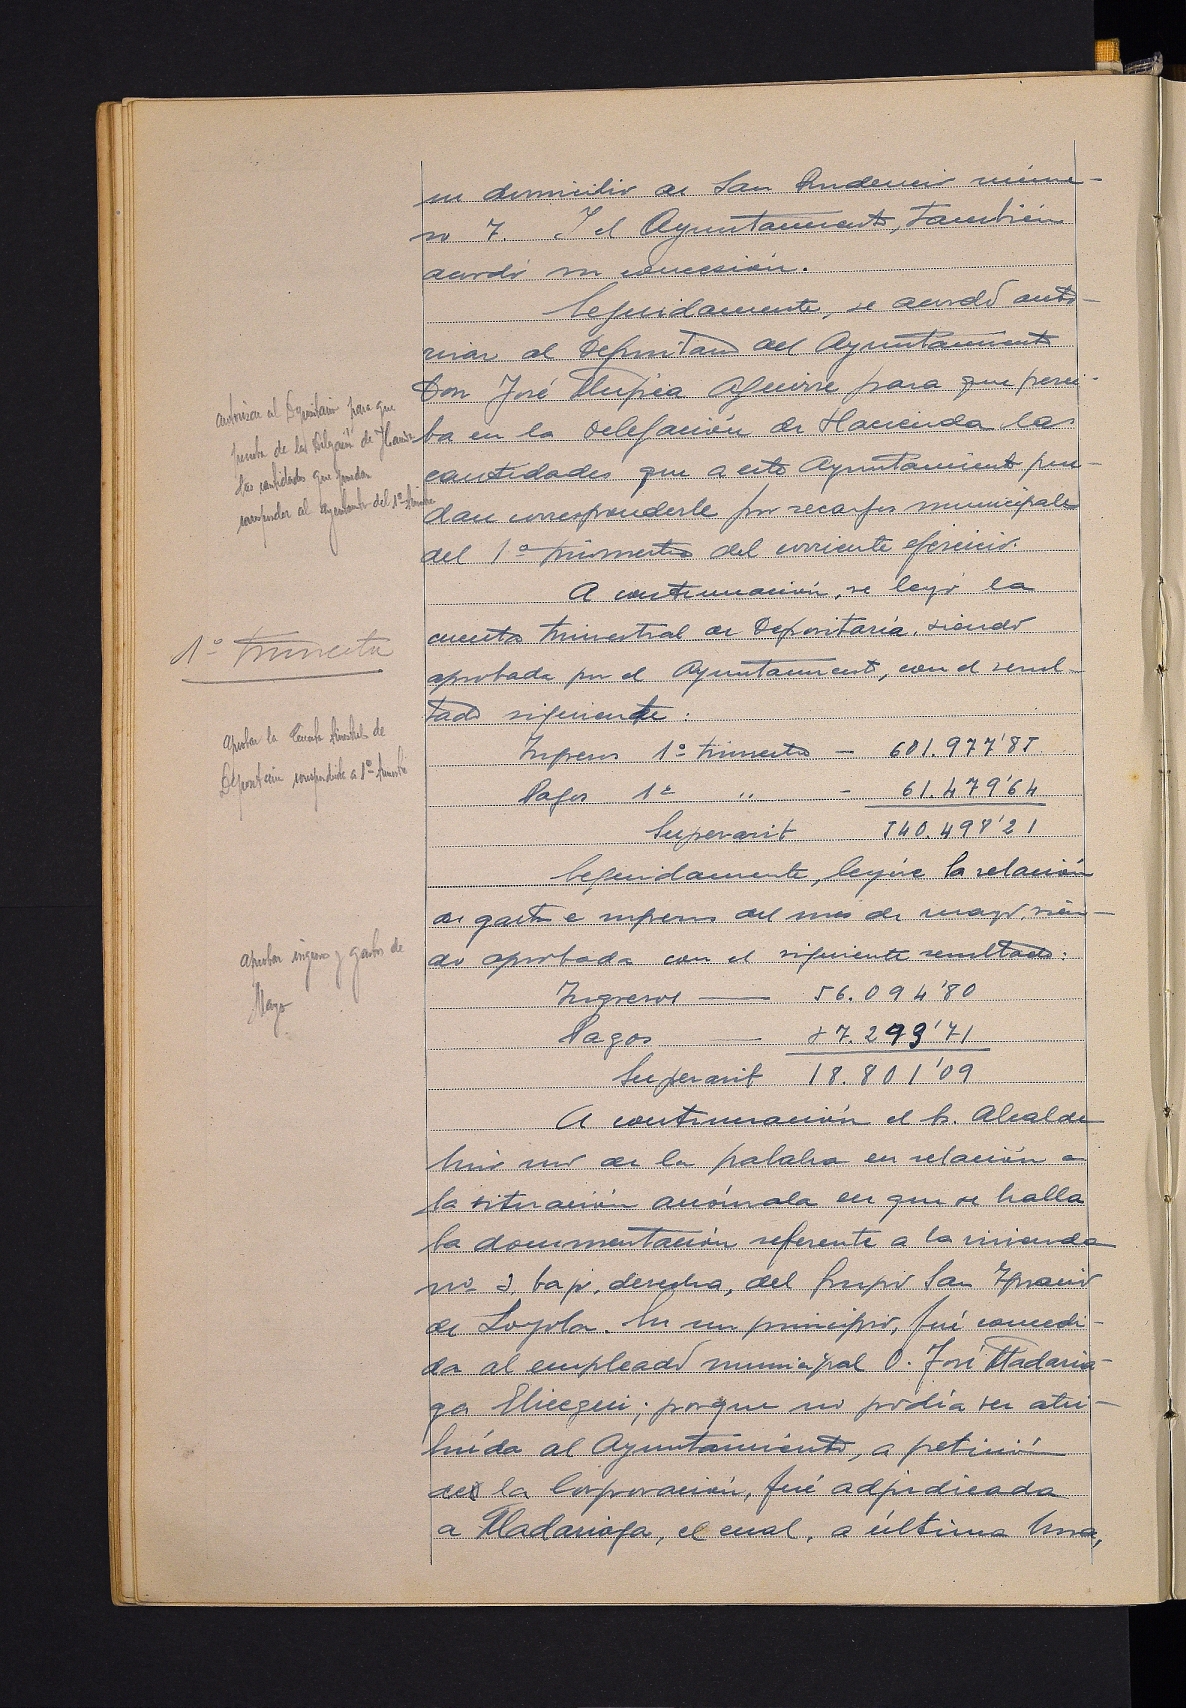 su domicilio de San Prudencio núme-
ro 7. Y el Ayuntamiento, también
acordó su concesión.
Seguidamente, se acordó auto-
rizar al Depositario del Ayuntamiento
Don José Aguirre para que perci-
ba en la Delegación de Hacienda las
cantidades que a este Ayuntamiento pue-
dan corresponderle por recargos municipales
del 1º trimestre del corriente ejercicio.
autorizar al Depositario para que
perciba de la Delegación de Hacienda
las cantidades que puedan
corresponder al Ayuntamiento del 1º trimestre
A continuación, se leyó la
cuenta trimestral de Depositaría, siendo
aprobada por el Ayuntamiento, con el resul-
tado siguiente:
1º trimestre
Ingresos 1º trimestre - 601.977'85
Pagos 1º " - 61.479'64
Superavit 540.498'21
aprobar la Cuenta trimestral de
Depositaría correspondiente a 1º trimestre
Seguidamente, leyóse la relación
de gastos e ingresos del mes de mayo, sien-
do aprobada con el siguiente resultado:
Ingresos — 56.094'80
Pagos — 37.293'71
Superavit 18.801'09
aprobar ingresos y gastos de
Mayo
A continuación el Sr. Alcalde
hizo uso de la palabra en relación a
la situación anómala en que se halla
la documentación referente a la vivienda
nº 2, bajo, derecha, del Grupo San Ignacio
de Loyola. En un principio, fué concedi-
da al empleado municipal D. José Madaria-
ga Elicegui; porque no podía ser atri-
buída al Ayuntamiento, a petición
de la Corporación, fué adjudicada
a Madariaga, el cual, a última hora,